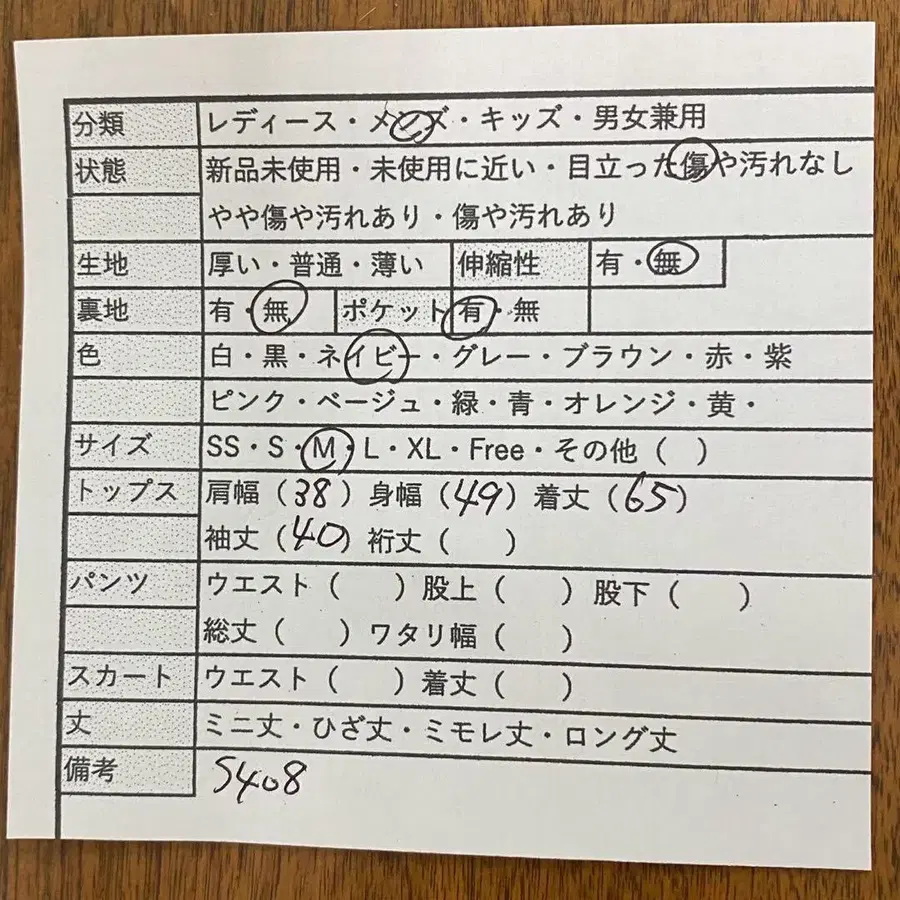 分類 レディース・メンズ・キッズ・男女兼用
状態 新品未使用・未使用に近い・目立った傷や汚れなし
やや傷や汚れあり・傷や汚れあり
生地 厚い・普通・薄い 伸縮性 有・無
裏地 有・無 ポケット 有・無
色 白・黒・ネイビー・グレー・ブラウン・赤・紫
ピンク・ベージュ・緑・青・オレンジ・黄・
サイズ SS・S・M・L・XL・Free・その他（ ）
トップス 肩幅（38）身幅（49）着丈（65）
袖丈（40）裄丈（ ）
パンツ ウエスト（ ）股上（ ）股下（ ）
総丈（ ）ワタリ幅（ ）
スカート ウエスト（ ）着丈（ ）
丈 ミニ丈・ひざ丈・ミモレ丈・ロング丈
備考 S408